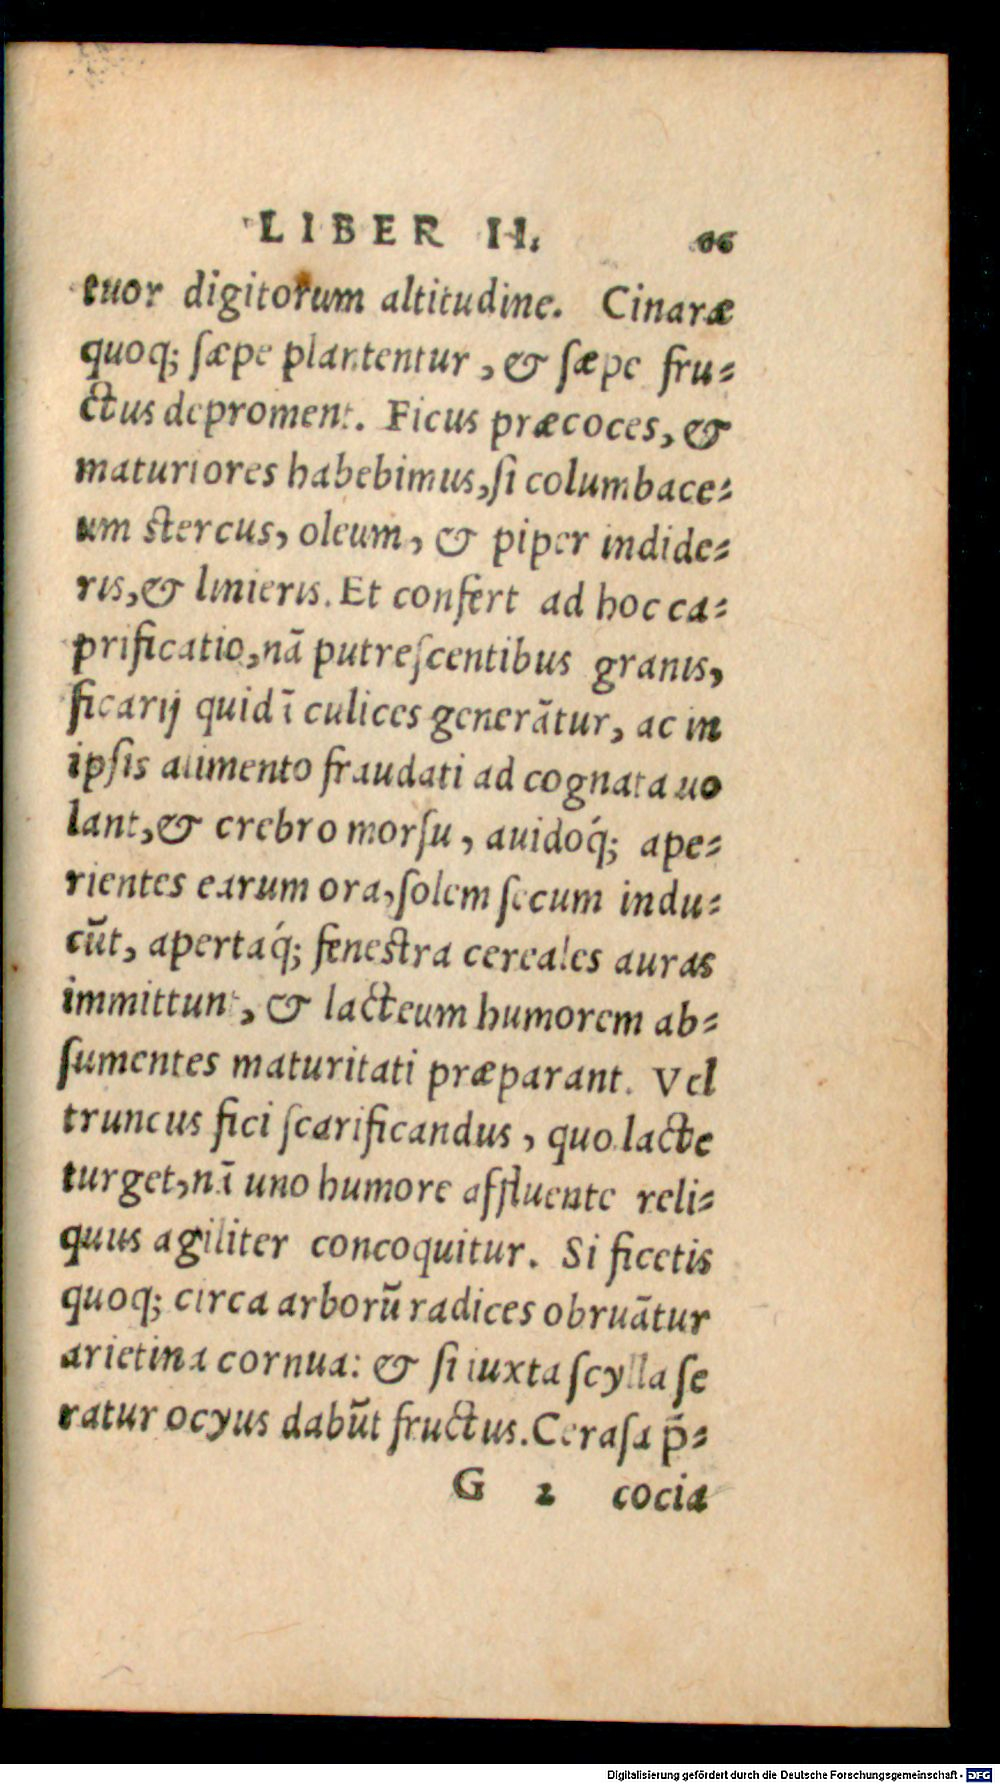 LIBER II. 66
tuor digitorum altitudine. Cinaræ
quoq; ſæpe plantentur, & ſæpe fru-
ctus deproment. Ficus præcoces, &
maturiores habebimus, ſi columbace-
um ſtercus, oleum, & piper indide-
ris, & linieris. Et confert ad hoc ca-
prificatio, nã putreſcentibus granis,
ficarij quidĩ culices generãtur, ac in
ipſis alimento fraudati ad cognata uo
lant, & crebro morſu, auidoq́; ape-
rientes earum ora, ſolem ſecum indu-
cũt, apertaq́; feneſtra cereales auras
immittunt, & lacteum humorem ab-
ſumentes maturitati præparant. Vel
truncus fici ſcarificandus, quo lacte
turget, nã uno humore affluente reli-
quus agiliter concoquitur. Si ficetis
quoq; circa arborũ radices obruãtur
arietina cornua: & ſi iuxta ſcylla ſe
ratur ocyus dabũt fructus. Ceraſa p̃-
G 2 cocia
Digitalisierung gefördert durch die Deutsche Forschungsgemeinschaft - DFG